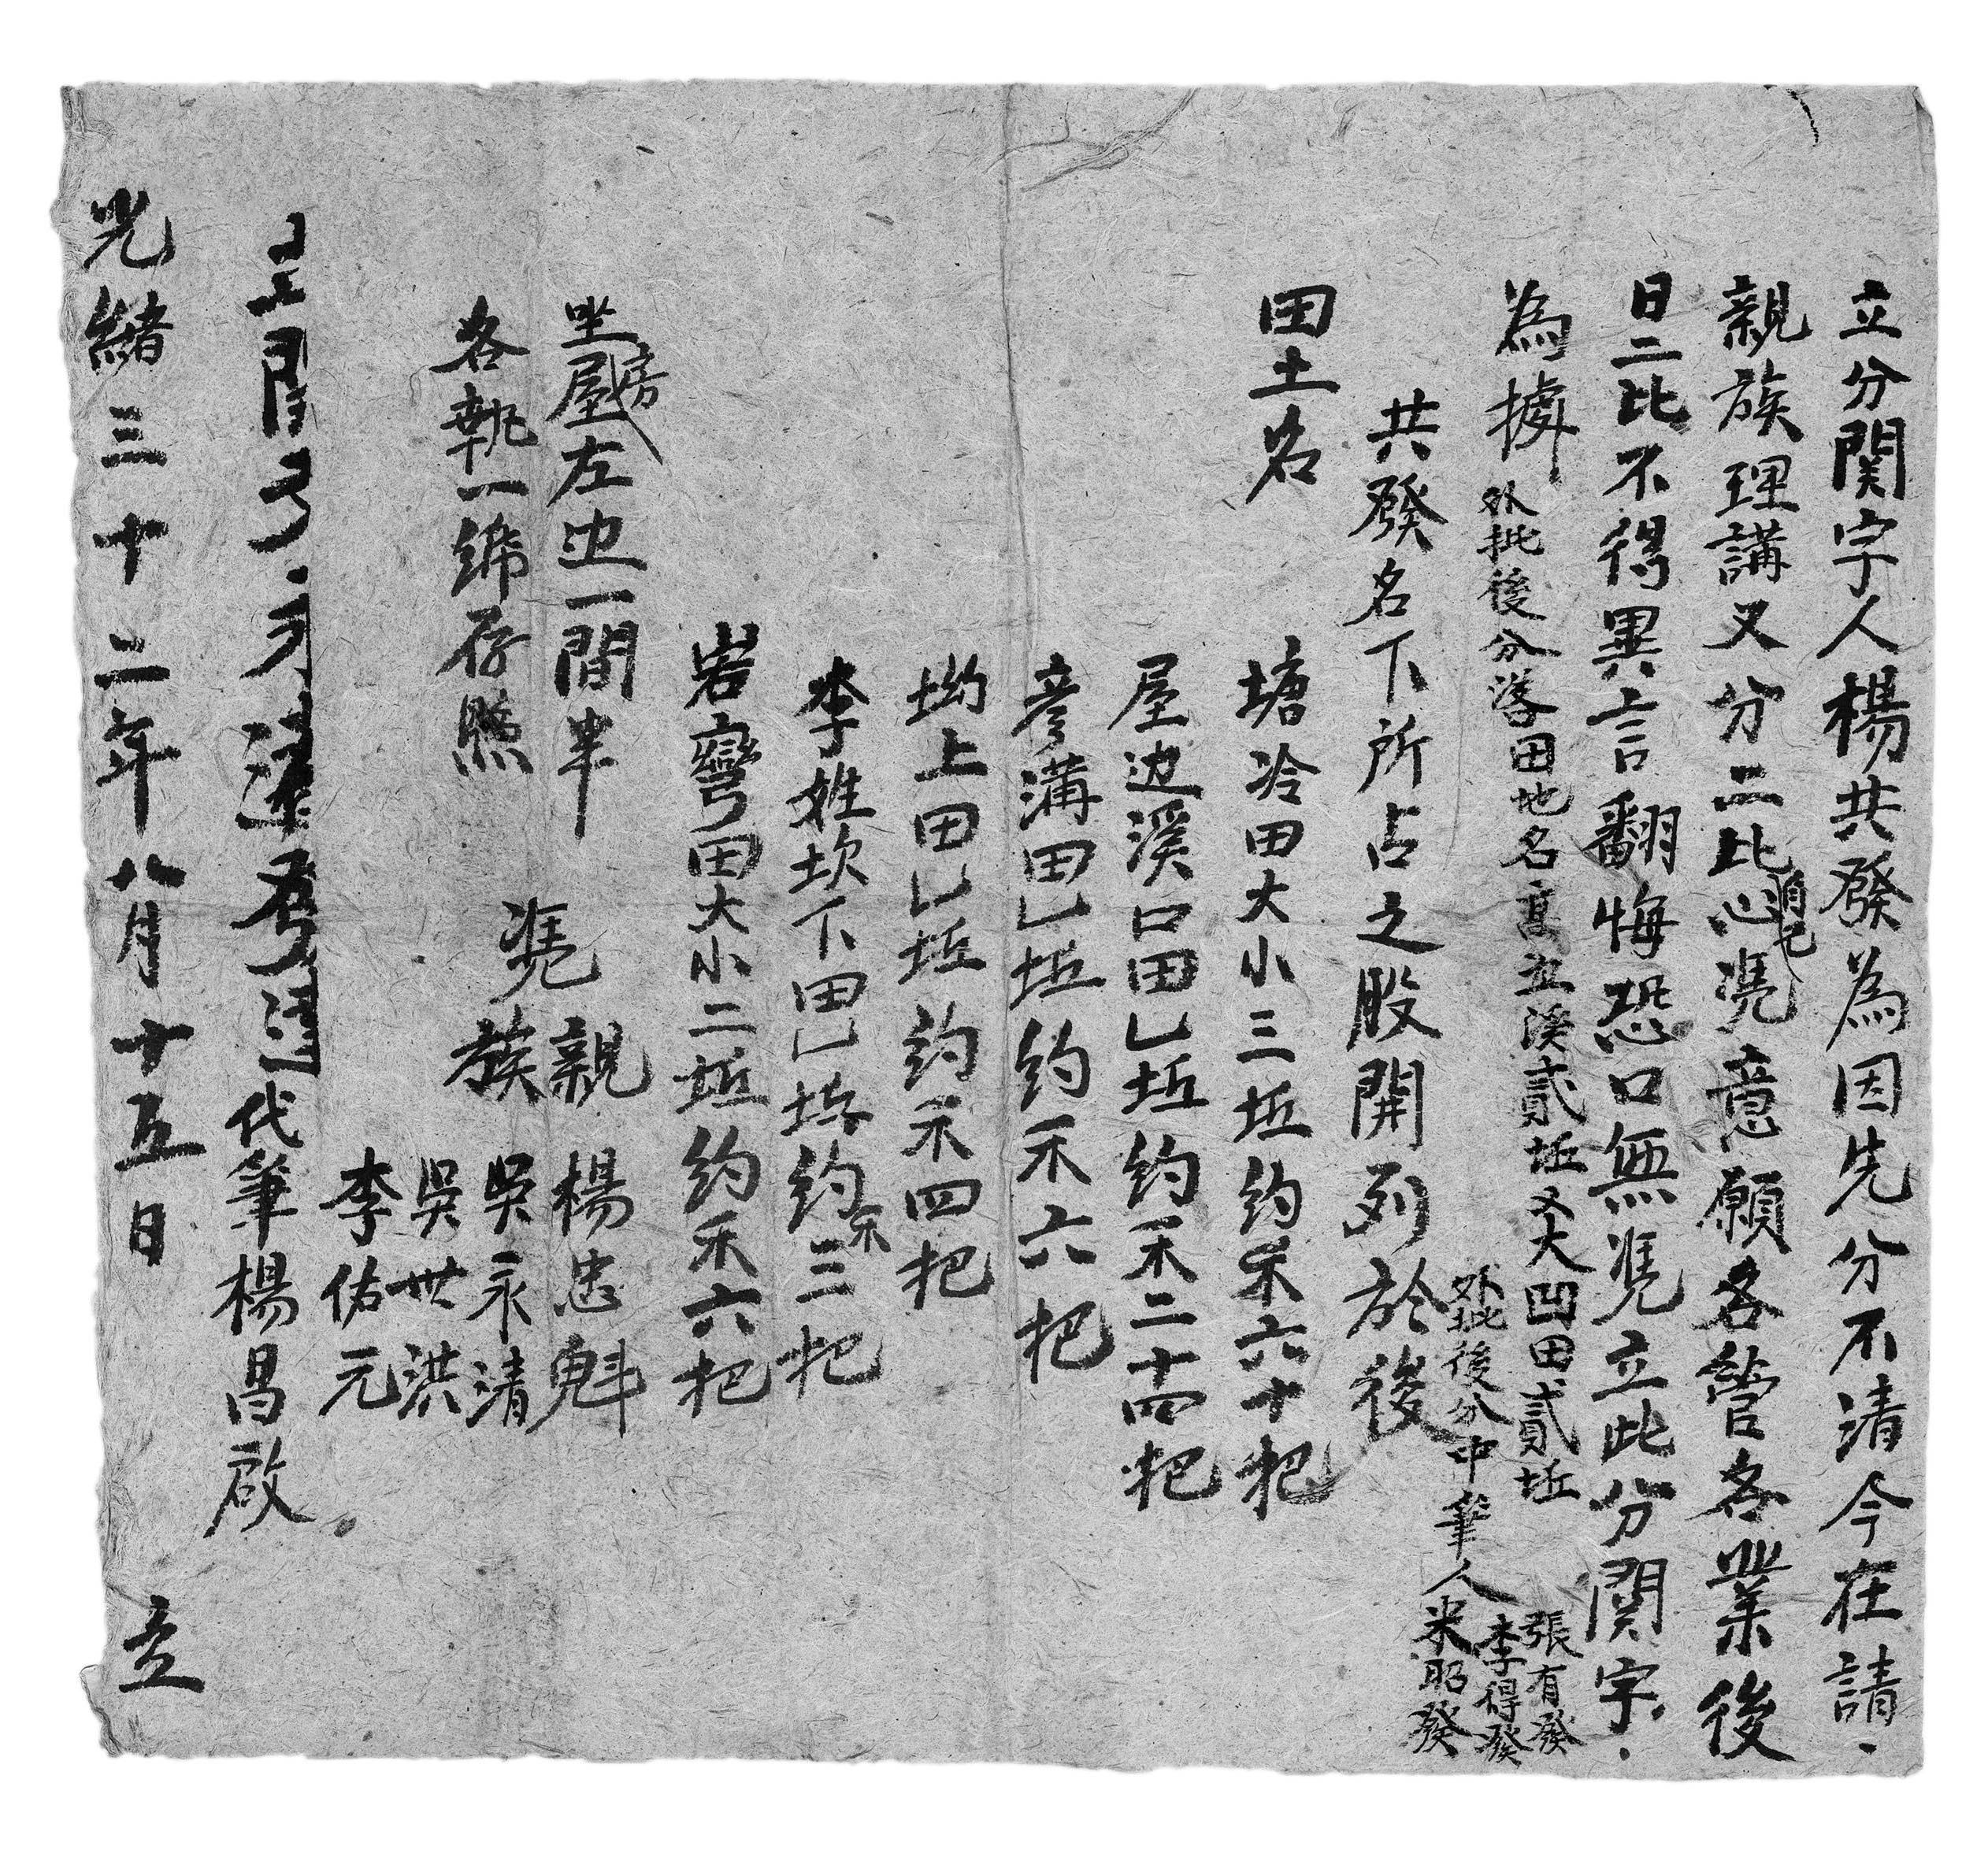 立分関字人楊共發為因先分不清今在請
親族理講又分二比心凴意願各管各業後
日二比不得異言翻悔恐口無凴立此分関字
為據
外批後分落田地名高立溪貳坵 大凹田貳坵
外批後分中筆人
張有發
李得發
米昭發
共發名下所占之股開列於後
田土名
塘冷田大小三坵約禾六十把
屋边溪口田乚坵約禾二十四把
彦溝田乚坵約禾六把
坳上田乚坵約禾四把
李姓坎下田乚坵約禾三把
岩彎田大小二坵約禾六把
坐房屋左边一間半
各執一紙存照
凴
親
族
楊忠魁
吳永清
吳世洪
李佑元
代筆楊昌啟
光緒三十二年八月十五日 立